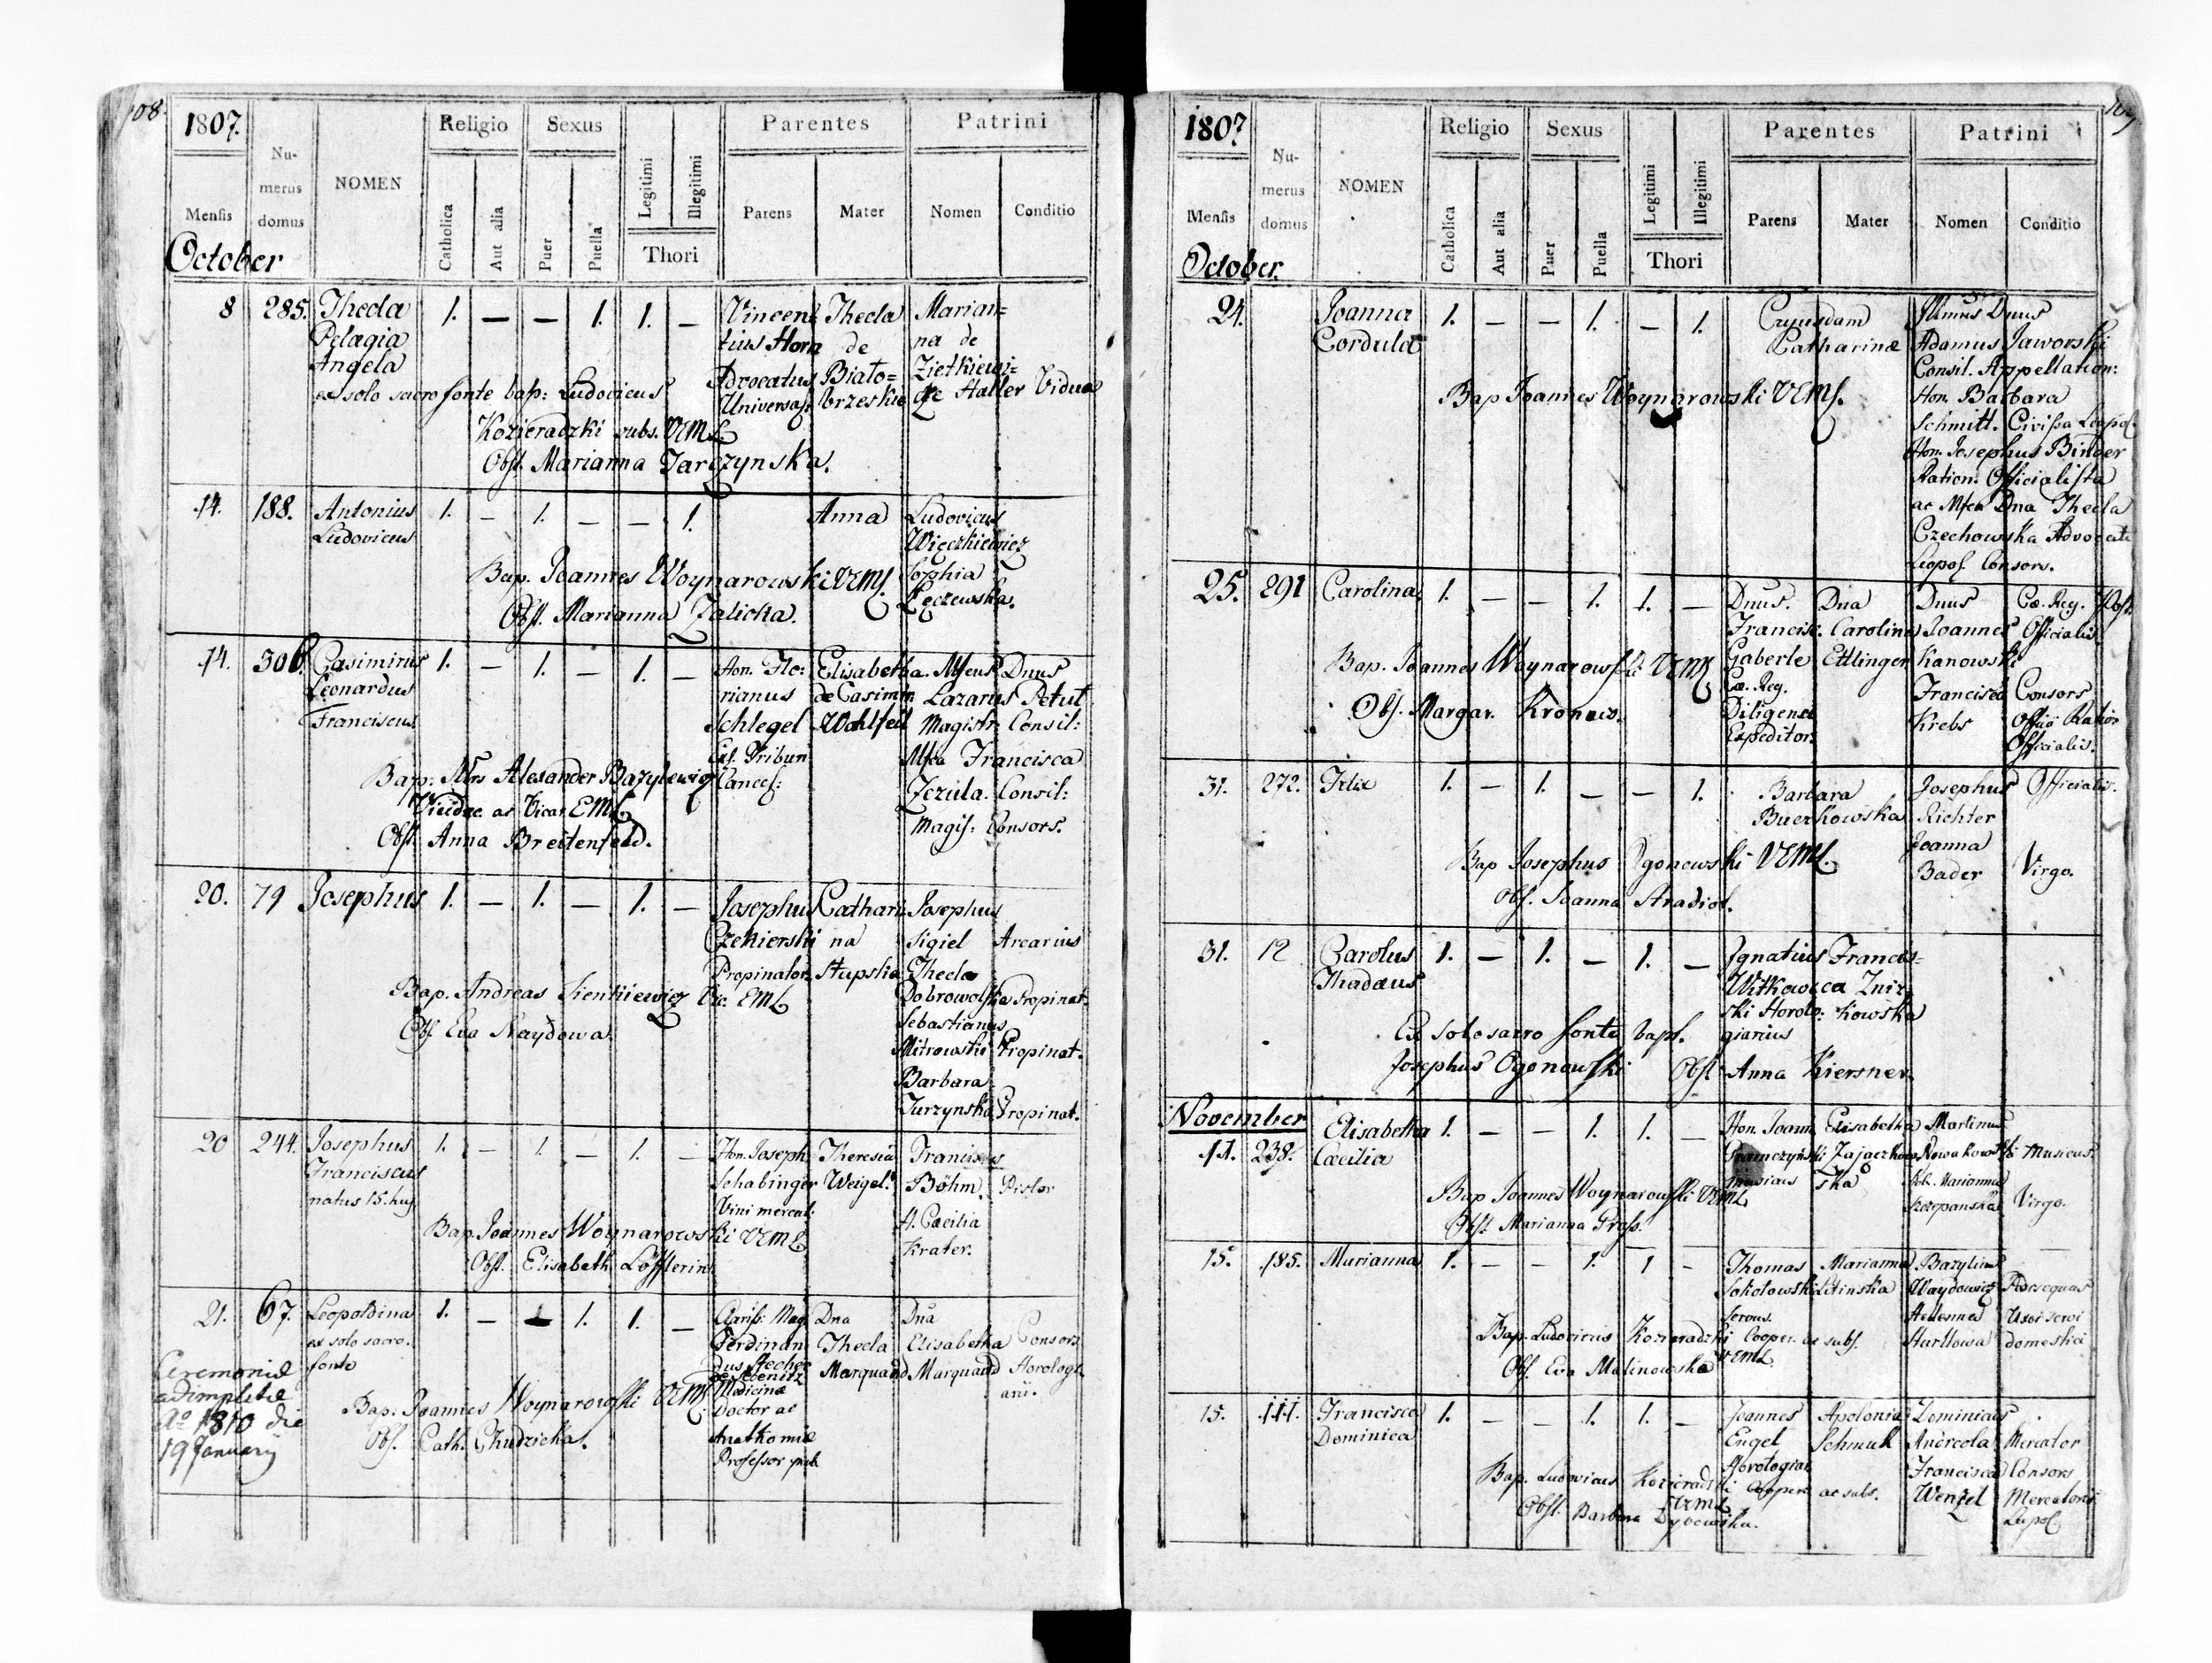 108.
1807.
Numerus domus
NOMEN
Religio
Sexus
Legitimi
Illegitimi
Thori
Parentes
Patrini
Mensis
Catholica
Aut alia
Puer
Puella
Parens
Mater
Nomen
Conditio
October
8 285. Thecla 1. — — 1. 1. — Vincen= Thecla Marian=
Pelagia tius Hora de na de
Angela Advocatus Biało= Zietkiewi=
ex solo sacro fonte bap: Ludovicus Universa: brzeskie Haller Vidua
Kozieradzki subs. VEML.
Obst. Marianna Jarczynska.
14. 188. Antonius 1. — 1. — — 1. Anna Ludovicus
Ludovicus Więczkiewicz
Bap. Joannes Woynarowski VEML. Sophia
Obst. Marianna Zalicka. Łęczewska.
14. 306. Casimirus 1. — 1. — 1. — Hon. Flo: Elisabetha. Mfcus Dnus
Leonardus rianus de Casimir Lazarus Petul
Franciscus Schlegel Wohlfeil Magistr: Consil:
Tribun Mfca Francisca
Bap: Alexander Bazylewicz Cancel: Jezula. Consil:
ac Vicar. EML Magis: Consors.
Obst. Anna Breitenfeld.
20. 79 Josephus 1. — 1. — 1. — Josephus Cathari Josephus
Czekierski na Sigiel Arcarius
Propinator Stupska Thecla
Bap. Andreas Sienkiewicz Vic. EML Dobrowolska Propinat.
Obst. Eva Naydowa. Sebastianus
Mitrowski Propinat.
Barbara
Jurzynska Propinat.
20 244. Josephus 1. — 1. — 1. — Hon. Joseph Theresia Franciscus
Franciscus Schabinger Weigel. Böhm. Pistor
natus 15. huj. Vini mercat: H. Caecilia
Bap. Joannes Woynarowski VEML Krater.
Obst. Elisabeth Löfflerin.
21. 67. Leopoldina 1. — — 1. 1. — Clariss: Mag. Dna Dna
ex solo sacro. Ferdinan Thecla Elisabetha Consors
fonte dus Stecher Marquand Marquand Horologi
Ceremoniae de Sebenitz ani.
adimpletae Bap. Joannes Woynarowski VEML Medicinae
Ao 1810 die Obs. Cath. Chudzicka. Doctor ac
19 January Anathomiae
Professor pub
109
1807
Numerus domus
NOMEN
Religio
Sexus
Legitimi
Illegitimi
Thori
Parentes
Patrini
Mensis
Catholica
Aut alia
Puer
Puella
Parens
Mater
Nomen
Conditio
October.
24. Joanna 1. — — 1. — 1. Cujusdam Illmus Dnus
Cordula Catharinae Adamus Jaworski
Consil. Appellation:
Bap Joannes Woynarowski VEML. Hon. Barbara
Schmitt. Civissa Leopol.
Hon. Josephus Binder
Ration. Officialista
ac Mfca Dna Thecla
Czechowska Advocati
Leopol. Consors.
25. 291 Carolina 1. — — 1. 1. — Dnus. Dna Dnus Cae. Reg.
Francisc. Carolina Joannes Officialis.
Bap. Joannes Woynarowski VEML Gaberle Ettlinger Kanowski
Cae. Reg. Francisca Consors
Obs. Margar. Kronaw. Diligence Krebs Ration
Expeditor. Officialis.
31. 272. Felix 1. — 1. — — 1. Barbara Josephus Officialis.
Buczkowska Richter
Bap Josephus Ogonowski VEML. Joanna
Bader Virgo.
Obs. Joanna Stradiot.
31. 12 Carolus 1. — 1. — 1. — Ignatius Francis=
Thadaeus Witkow ca Zniz
ski Horolo: kowska
Ex solo sacro fonte bapt. giarius
Josephus Ogonowski Obst. Anna Kiersner.
November Elisabetha 1. — — 1. 1. — Hon. Joann Elisabetha Martinus
11. 238. Caecilia Zajączkow Nowakowski Musicus.
Musicus ska Marianna
Bap Joannes Woynarowski VEML Szczepanska Virgo.
Obst. Marianna Pross.
15. 185. Marianna 1. — — 1. 1 — Thomas Marianna Bazylius
Sokolowski Litinska Waydowicz
Servus.
Bap. Ludovicus Kozieradzki Cooper. ac subs. Hartlowa domestici
Obs. Eva Malinowska VEML.
15. 111. Francisca 1. — — 1. 1. — Joannes Apolonia Dominicus
Dominica Engel Schmuk Andreola Mercator
Horologiar Francisca Consors
Bap. Ludovicus Kozieradzki Cooper ac subs. Wenzel Mercatoris
VEML Leopol.
Obst. Barbara Dybowska.